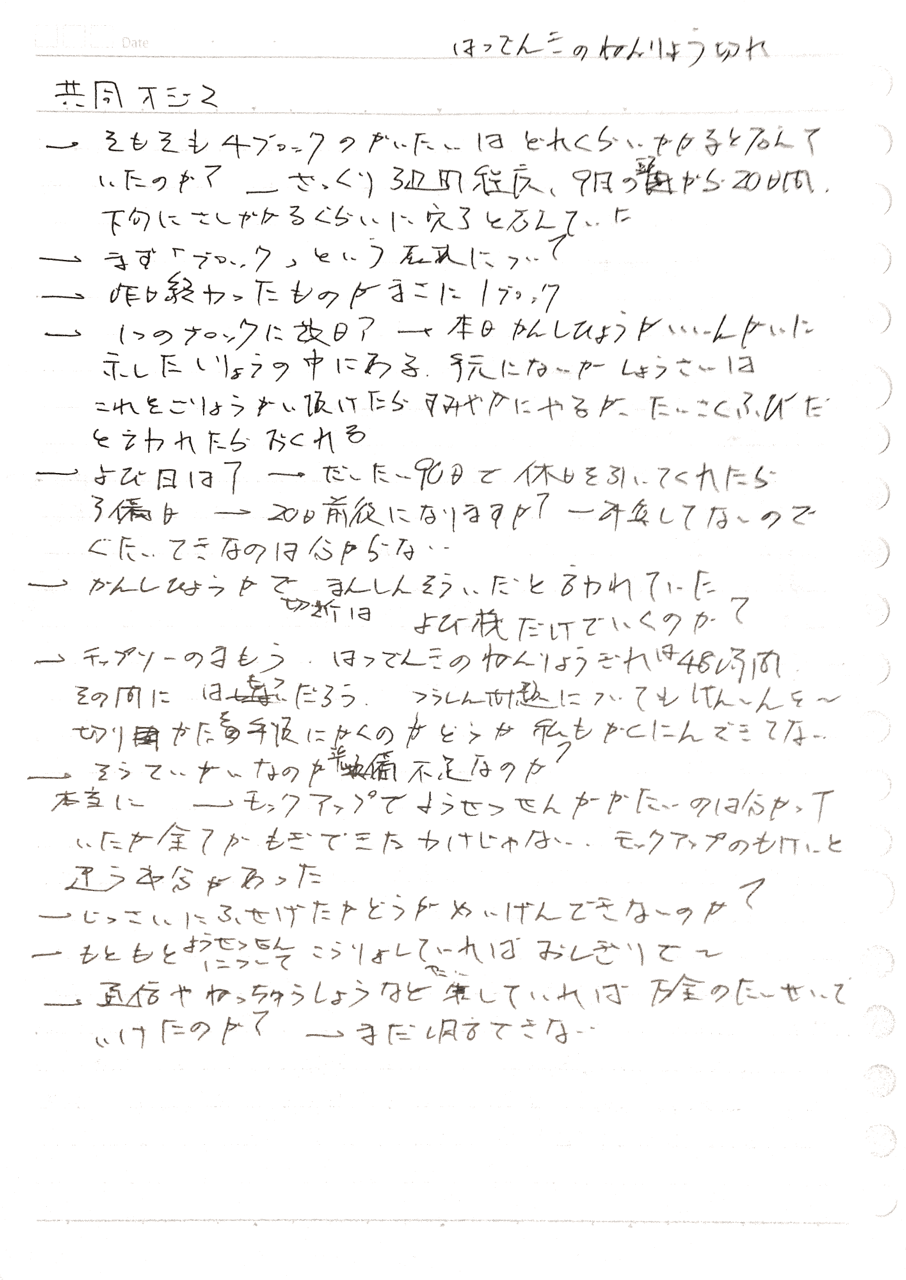 はってんきのねんりょう切れ
共同オジマ
→ そもそも4ブロックのかいたいはどれくらいかかると
いたのか? → ざっくり3週間程度、9月の から20日間、
下旬にさしかかるぐらいに完了と ていた
→ まず「ブロック」という について
→ 昨日終わったものがまさに1ブロック
→ 1つのブロックに ? → 本日かんしひょうかいいんかいに
示したしりょうの中にある、手元にないがしょうさいは
これをごりょうかい頂けたらすみやかにやるが、たいさくふびだ
と言われたらおくれる
→ よび日は? → だいたい90日で休日を引いてくれたら
予備日 → 20日前後になりますか? → してないので
ぐたいてきなのは分からない
→ かんしひょうかで まんしんそういだと言われていた
切断は よび機だけでいくのか?
→ チップソーのまもう、はってんきのねんりょうぎれは48時間
その間に だろう、つうしん問題についてもけんーんを〜
切り かた も手順にかくのかどうか私もかくにんできてない
→ そうていがいなのか準備不足なのか?
本当に → モックアップでようせつせんがかたいのは分かって
いたが全てがもぎできたわけじゃない、モックアップのもけいと
違う部分があった
→ じっさいにふせげたかどうかめいげんできないのか?
→ もともとようせつせんについてこうりょしていればおしぎりで〜
→ 通信やねっちゅうしょうなど していれば万全のたいせいで
いけたのか? → まだ明言できない